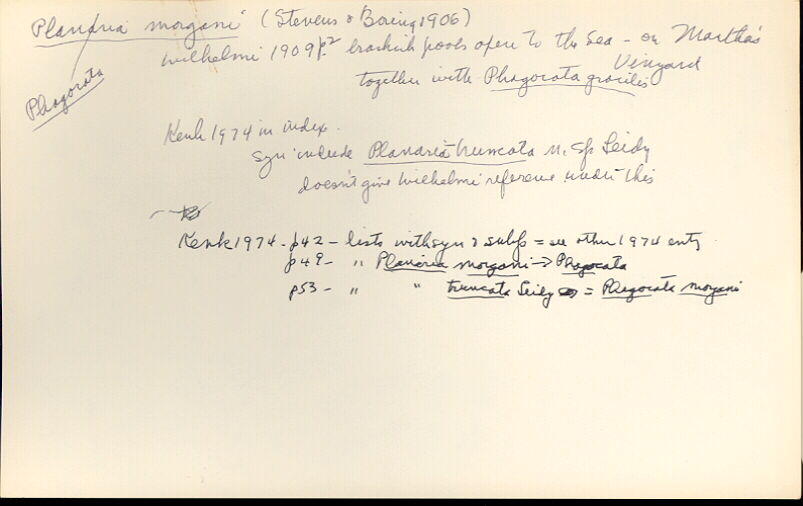 Planaria morgani (Stevens & Boring 1906)
Wilhelmi 1909 p.2 brackish pools open to the sea - on Martha's
Vinyard
together with Phagocata gracilis
Phagocata
Kenk 1974 in index.
syn include Planaria truncata n. sp Leidy
doesn't give Wilhelmi reference under this
Kenk 1974 - p42 - lists with syn & subsp = see other 1974 entry
p49 - " Planaria morgani -> Phagocata
p53 - " " truncata Leidy = Phagocata morgani